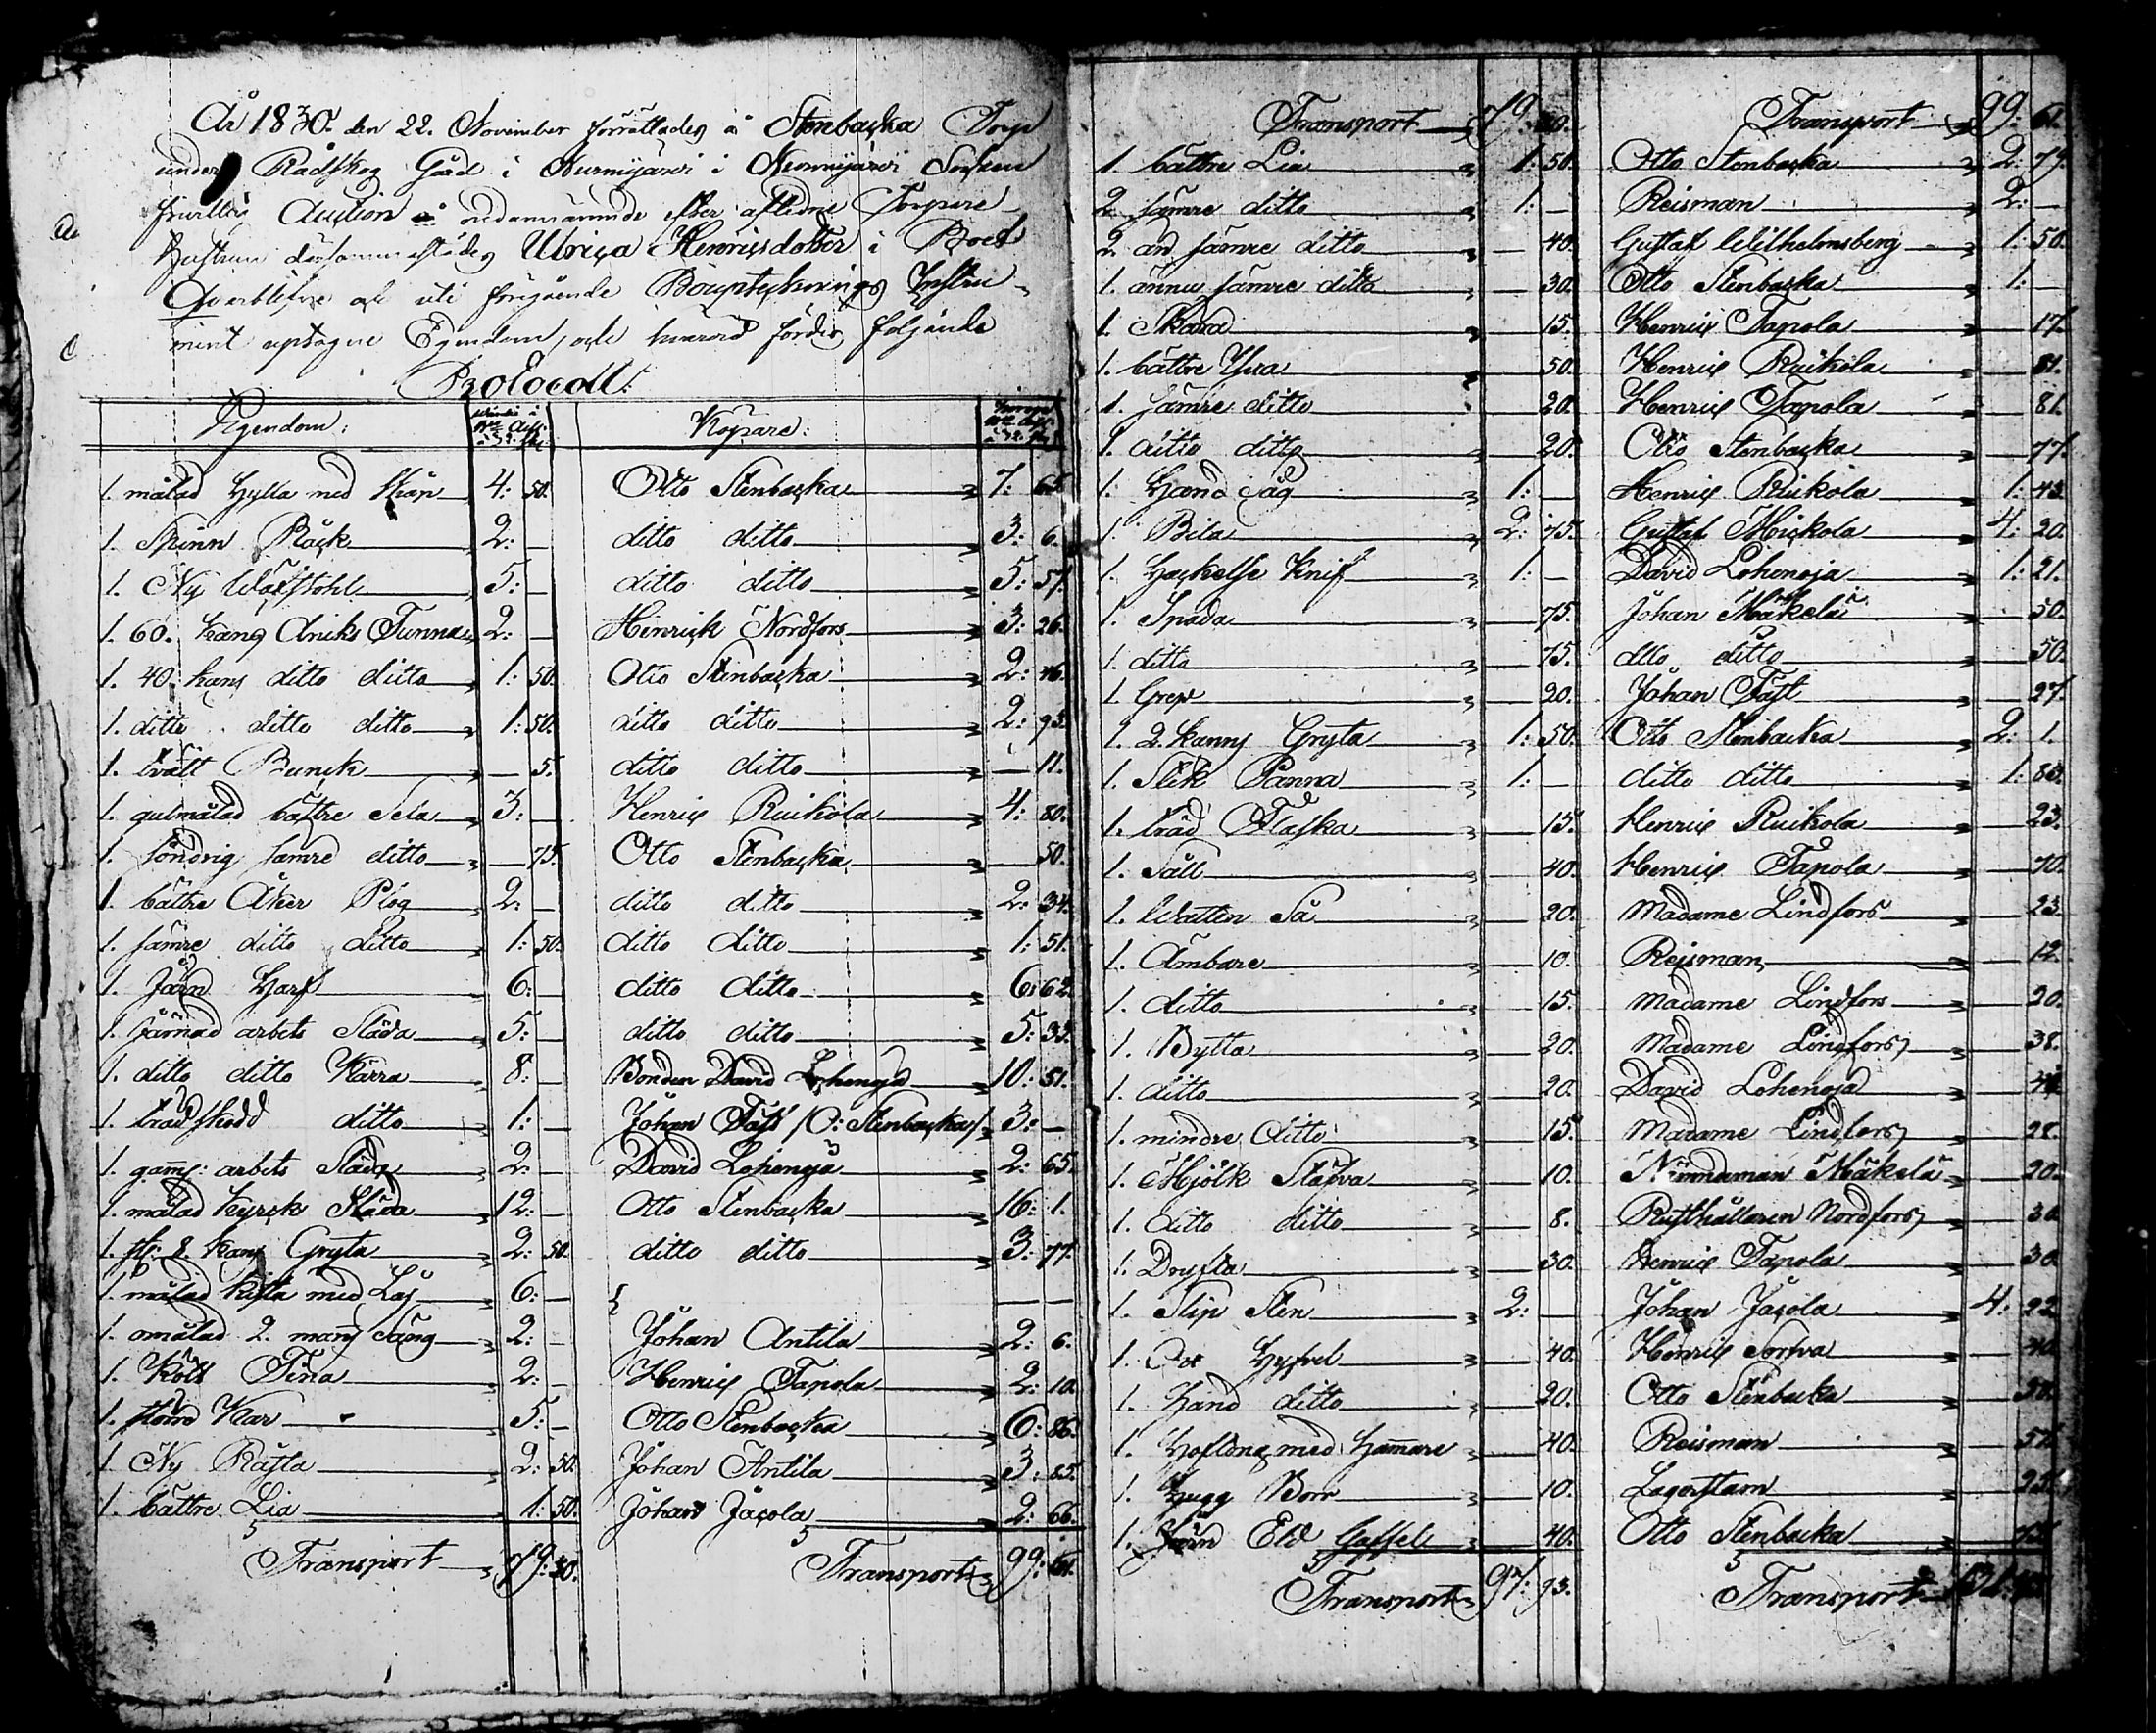 År 1830. den 22. November förrättades å Stenbacka Torp
under Rådskog Gård i Nurmijärvi i Nurmijärvi Socken
frivillig Auction å nedannämnde efter aflidne Torpare
hustrun dersammastädes Ulrica Henricsdotter i Boet
Qvarblefne och uti föregående Bouptecknings Instru-
ment uptagne Egendom, och hvarvid fördes följande
Protocoll:
Egendom: Köpare:
1. målad Hylla med Skåp 4: 50. Otto Stenbacka 7: 65.
1. Spinn Råck 2: — ditto ditto 3: 6.
1. Ny Wäfstohl 5: — ditto ditto 5: 57.
1. 60. kan̄s Dricks Tunna 2: — Hinrick Nordfors 3: 26.
1. 40. kan̄s ditto ditto 1: 50. Otto Stenbacka 2: 46.
1. ditto ditto ditto 1: 50. ditto ditto 2: 93.
1. tvätt Bunck — 5. ditto ditto — 11.
1. gulmålad bättre Sela 3: — Henric Ruikola 4: 80.
1. söndrig sämre ditto — 75. Otto Stenbacka — 50.
1. bättre Åker Plog 2: — ditto ditto 2: 34.
1. sämre ditto ditto 1: 50. ditto ditto 1: 51.
1. Järn Harf 6: — ditto ditto 6: 62.
1. järnad arbets Släda 5: — ditto ditto 5: 33.
1. ditto ditto Kärra 8: — Bonden David Lohenoja 10: 51.
1. trädskodd ditto 1: — Johan Fäst /O: Stenbacka/ 3: —
1. gam̄: arbets Släda 2: — David Lohenoja 2: 65.
1. målad Kyrck Släda 12: — Otto Stenbacka 16: 1.
1. st: 8. kan̄s Gryta 2: 50. ditto ditto 3: 77.
1. målad Kista med Lås 6: — — —
1. omålad 2. man̄s Säng 2: — Johan Antila 2: 6.
1. Kött Tina 2: — Henric Tapola 2: 10.
1. större Kar 5: — Otto Stenbacka 6: 86.
1. Ny Råsla 2: 50. Johan Antila 3: 85.
1. bättre Lia 1: 50. Johan Jacola 2: 66.
Transport 79: 30. Transport 99: 61.
Transport 79: 30. Transport 99: 61.
1. bättre Lia 1: 50. Otto Stenbacka 2: 79.
2. sämre ditto 1: — Reisman 2: —
2. än sämre ditto — 40. Gustaf Wilhelmsberg 1: 50.
1. ännu sämre ditto — 30. Otto Stenbacka 1: —
1. Skära — 15. Henric Tapola — 17.
1. bättre Yxa — 50. Henric Ruikola — 81.
1. sämre ditto — 20. Henric Tapola — 81.
1. ditto ditto — 20. Otto Stenbacka — 77.
1. Hand Såg 1: — Henric Ruikola 1: 43.
1. Bila 2: 75. Gustaf Moickola 4: 20.
1. Hackelse Knif 1: — David Lohenoja 1: 21.
1. Spada — 75. Johan Mäkelä — 50.
1. ditto — 75. ditto ditto — 50.
1. Grep — 20. Johan Fäst — 27.
1. 2. kan̄s Gryta 1: 50. Otto Stenbacka 2: 1.
1. Stek Panna 1: — ditto ditto 1: 80.
1. träd Flaska — 15. Henric Ruikola — 23.
1. Såll — 40. Henric Tapola — 70.
1. Watten Så — 20. Madame Lindfors — 23.
1. Ämbare — 10. Reisman — 12.
1. ditto — 15. Madame Lindfors — 20.
1. Bytta — 20. Madame Lindfors — 38.
1. ditto — 20. David Lohenoja
1. mindre ditto — 15. Madame Lindfors — 28.
1. Mjölk Stäfva — 10. Nämndeman Mäkelä — 20.
1. ditto ditto — 8. Rusthållaren Nordfors — 30.
1. Dryfta — 30. Henric Tapola — 30.
1. Slip Sten 2: — Johan Jacola 4: 22.
1. Ox Hyfvel — 40. Henric Sorfva — 40.
1. Hand ditto — 20. Otto Stenbacka — 30.
1. Hoftång med Ham̄are — 40. Reisman — 57.
1. Hugg Borr — 10. Lagerstam — 25.
1. Järn Eld Gaffel — 40. Otto Stenbacka
Transport 97: 93. Transport